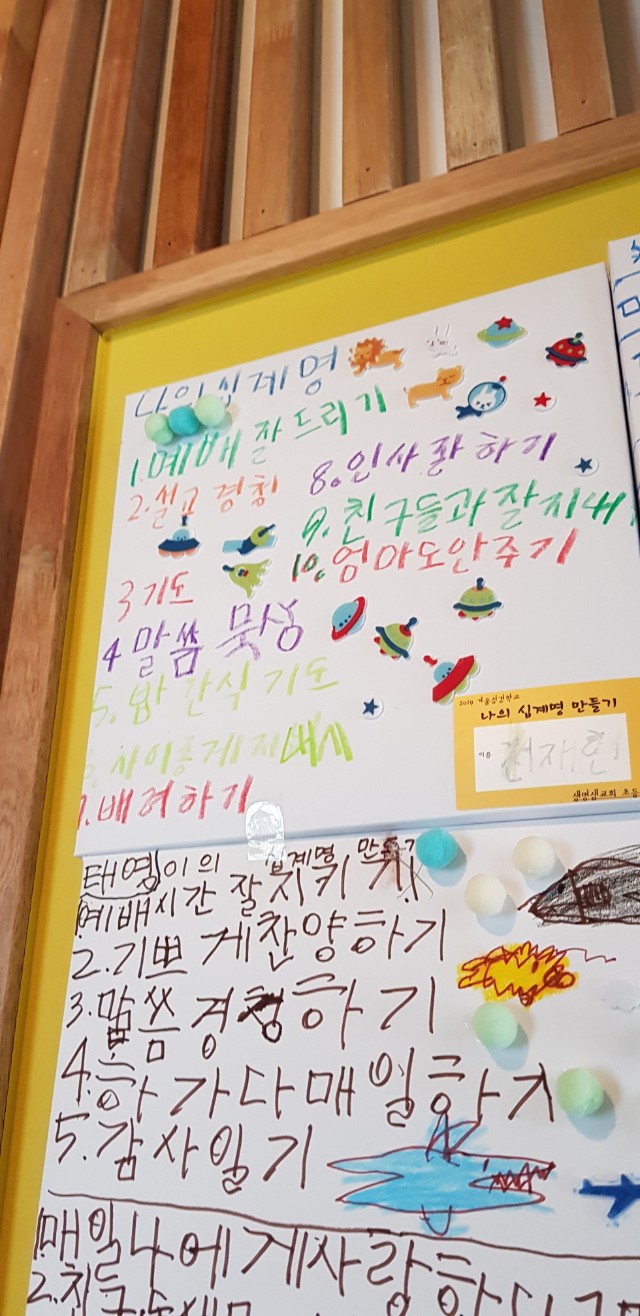 나의십계명
1.예배 잘드리기
2.설교 경청
3 기도
4 말씀 묵상
5. 밤 간식 기도
6. 사이좋게 지내기
7.배려하기
8.인사 잘하기
9.친구들과잘지내
10.엄마도안주기
2019 겨울성경학교
나의 십계명 만들기
이름
재현
생명샘교회 초등
태영이의 십계명 만들기
예배시간 잘 지키기
2.기쁘게찬양하기
3.말씀 경청하기
4.하가다매일하기
5.감사일기
1.매일나에게사랑합니다
2.친구